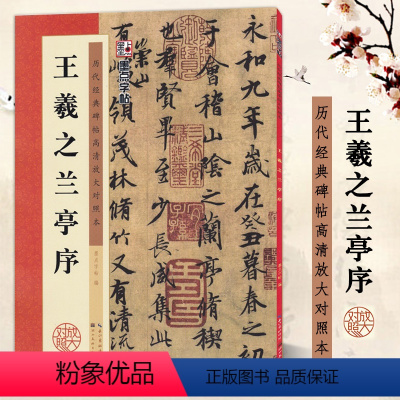 王羲之兰亭序
历代经典碑帖高清放大对照本
墨点字帖
放大对照
永和九年歲在癸丑暮春之初
于會稽山陰之蘭亭脩稧
也羣賢畢至少長咸集
崇山
領茂林脩竹又有清流
王羲之兰亭序
历代经典碑帖高清放大对照本
放大对照
粉象优品